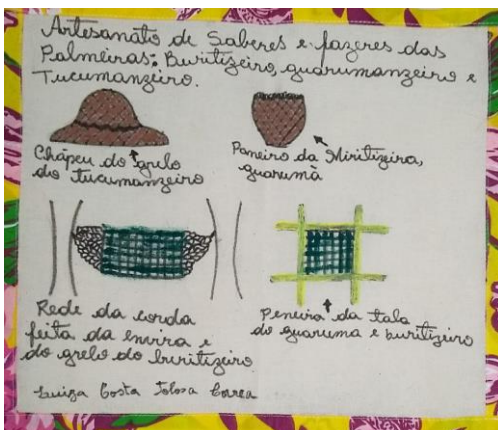 Artesanato de Saberes e fazeres das
Palmeiras: Buritizeiro, guarumanzeiro e
Tucumanzeiro.
Chapéu do grelo
do tucumanzeiro
Paneiro da Miritizeira,
guarumã
Rede da corda
feita da envira e
do grelo do buritizeiro
Peneira da tala
do guaruma e buritizeiro
Luiza Costa Tolosa Correa